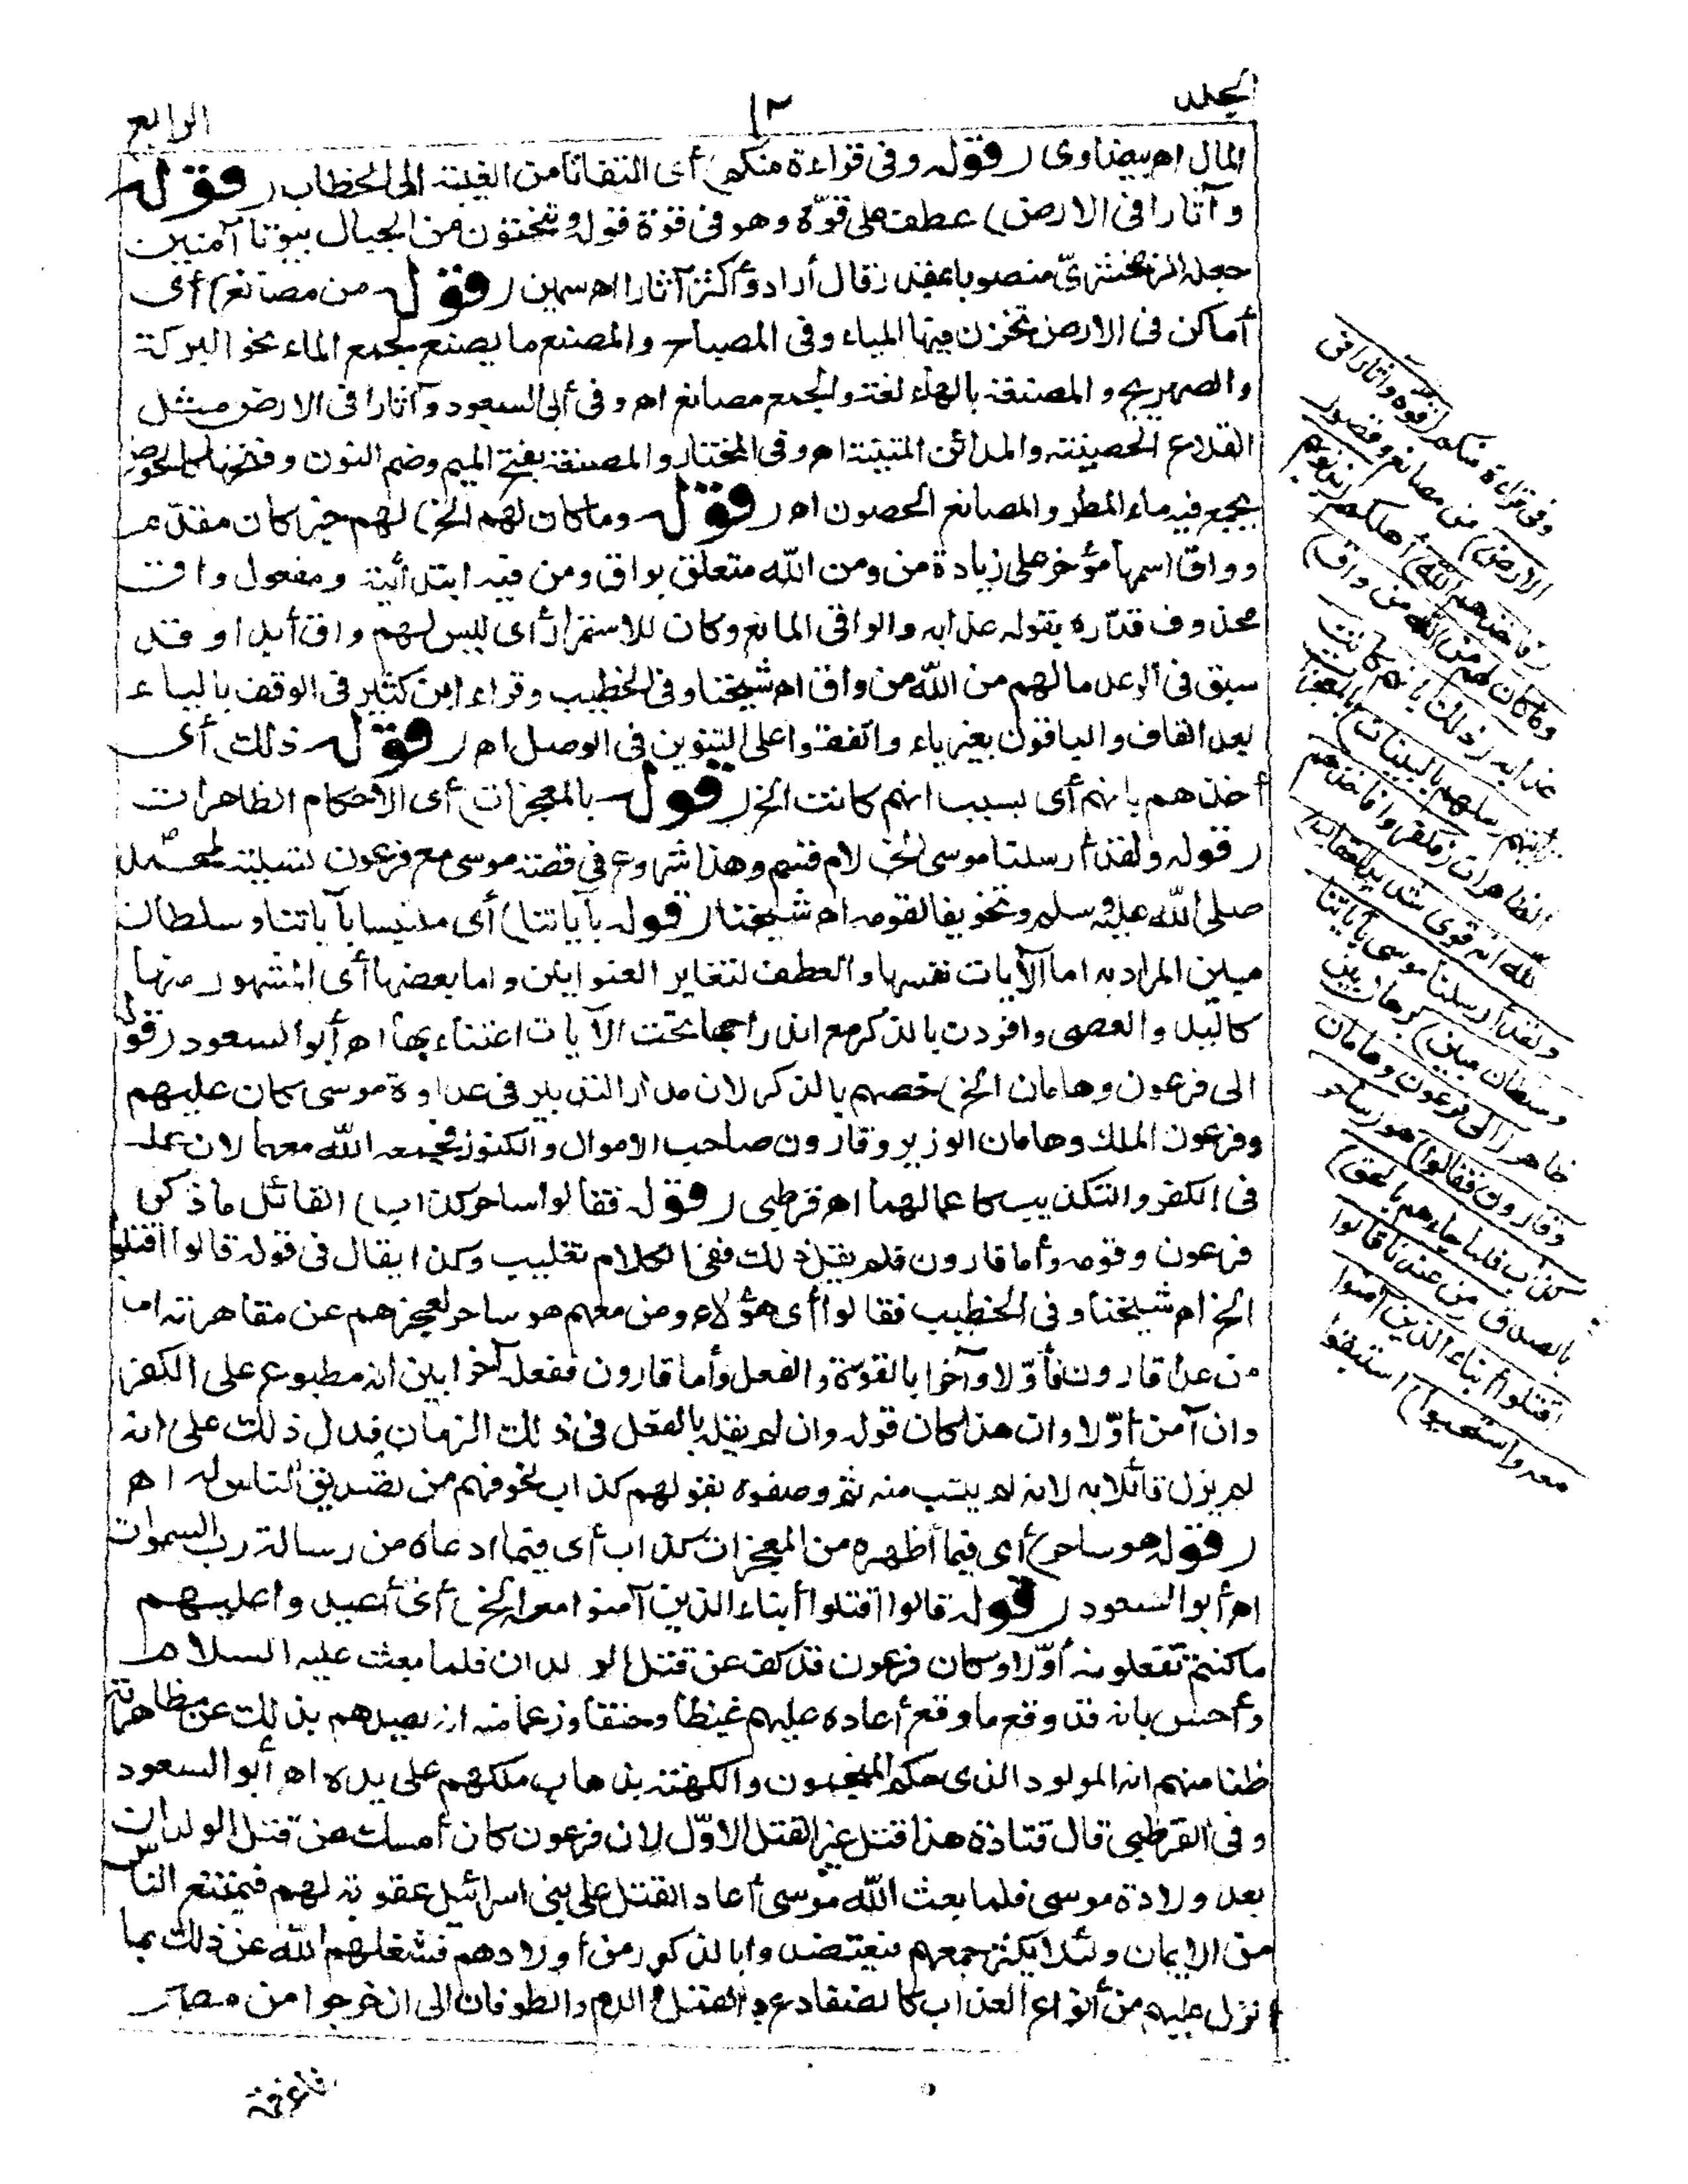 الجلد
١٢
الرابع
المال اه بيضاوى (قوله وفى قراءة منكم) أى التفاتا من الغيبة الى الخطاب (قوله
وآثارا فى الارض) عطف على قوّة وهو فى قوّة قوله وتنحتون من الجبال بيوتا آمنين
جعله الزمخشرىّ منصوبا بمقدر قال أرادوأكثر آثارا اه سمين (قوله من مصانع) أى
أماكن فى الارض تخزن فيها المياء وفى المصباح والمصنع ما يصنع لجمع الماء نحو البركة
والصهريج والمصنعة بالهاء لغة والجمع مصانع اه وفى أبى السعود وآثارا فى الارض مثل
القلاع الحصينة والمدائن المتينة اه وفى المختار والمصنعة بفتح الميم وضم النون وفتحها كالحوض
يجمع فيه ماء المطر والمصانع الحصون اه (قوله وما كان لهم الخ) لهم خبر كان مقدّم
وواق اسمها مؤخر على زيادة من ومن الله متعلق بواق ومن فيه ابتدائية ومفعول واق
محذوف قدّره بقوله عذابه والواقى المانع وكان للاستمرار أى ليس لهم واق أبدا وقد
سبق فى الرعد مالهم من الله من واق اه شيخنا وفى الخطيب وقراء ابن كثير فى الوقف بالياء
بعد القاف والباقون بغير ياء واتفقوا على التنوين فى الوصل اه (قوله ذلك) أى
أخذهم بانهم أى بسبب انهم كانت الخ (قوله بالمعجزات) أى الاحكام الظاهرات
(قوله ولقد أرسلنا موسى الخ) لام قسم وهذا شروع فى قصة موسى مع فرعون لتسلية لمحمد
صلى الله عليه وسلم وتخويفا لقومه اه شيخنا (قوله بآياتنا) أى ملتبسا بآياتنا وسلطان
مبين المراد به اما الآيات نفسها والعطف لتغاير العنوانين واما بعضها أى المشهور منها
كاليد والعصى وافردت بالذكر مع اندراجها تحت الآيات اعتناء بها اه أبو السعود (قوله
الى فرعون وهامان الخ) خصهم بالذكر لان مدار التدبير فى عداوة موسى كان عليهم
وفرعون الملك وهامان الوزير وقارون صاحب الاموال والكنوز فجمعه الله معهما لان عمله
فى الكفر والتكذيب كاعمالهما اه قرطبى (قوله فقالوا ساحر كذاب) القائل ما ذكر
فرعون وقومه وأما قارون فلم يقل ذلك ففى الكلام تغليب وكذا يقال فى قوله قالوا اقتلوا
الخ اه شيخنا وفى الخطيب فقالوا أى هؤلاء ومن معهم هو ساحر لعجزهم عن مقاهرته اما
من عدا قارون فأوّلا وآخرا بالقوة والفعل وأما قارون ففعله آخرا بين انه مطبوع على الكفر
وان آمن أوّلا وان هذا كان قوله وان لم يقله بالفعل فى ذلك الزمان فدل ذلك على انه
لم يزل قائلا به لانه لم يتب منه ثم وصفوه بقولهم كذاب لخوفهم من تصديق الناس له اه
(قوله هو ساحر) أى فيما أظهره من المعجزات كذاب أى فيما ادعاه من رسالة رب السموات
اه أبو السعود (قوله قالوا اقتلوا أبناء الذين آمنوا معه الخ) أى أعيدوا عليهم
ما كنتم تفعلونه أوّلا وكان فرعون قد كف عن قتل الولدان فلما بعث عليه السلام
وأحس بانه قد وقع ما وقع أعاده عليهم غيظا وحنقا وزعما منه انه يصدهم بذلك عن مظاهرته
ظنا منهم انه المولود الذى حكم المنجمون والكهنة بذهاب ملكهم على يده اه أبو السعود
وفى القرطبى قال قتادة هذا قتل غير القتل الاوّل لان فرعون كان أمسك عن قتل الولدان
بعد ولادة موسى فلما بعث الله موسى أعاد القتل على بنى اسرائيل عقوبة لهم فيمتنع الناس
من الايمان ولئلا يكثر جمعهم فيعتضدوا بالذكور من أولادهم فشغلهم الله عن ذلك بما
أنزل عليهم من أنواع العذاب كالضفادع والقمل والدم والطوفان الى ان خرجوا من مصر
وفى قراءة منكم (قوة وآثارا فى
الارض) من مصانع وقصور
(فاخذهم الله) أهلكهم (بذنوبهم
وما كان لهم من الله من واق)
عذابه (ذلك بانهم كانت
تأتيهم رسلهم بالبينات) بالمعجزات
الظاهرات (فكفروا فاخذهم
الله انه قوى شديد العقاب)
ولقد أرسلنا موسى بآياتنا
وسلطان مبين) برهان بين
ظاهر (الى فرعون وهامان
وقارون فقالوا) هو (ساحر
كذاب فلما جاءهم بالحق)
بالصدق (من عندنا قالوا
اقتلوا أبناء الذين آمنوا
معه واستحيوا) استبقوا